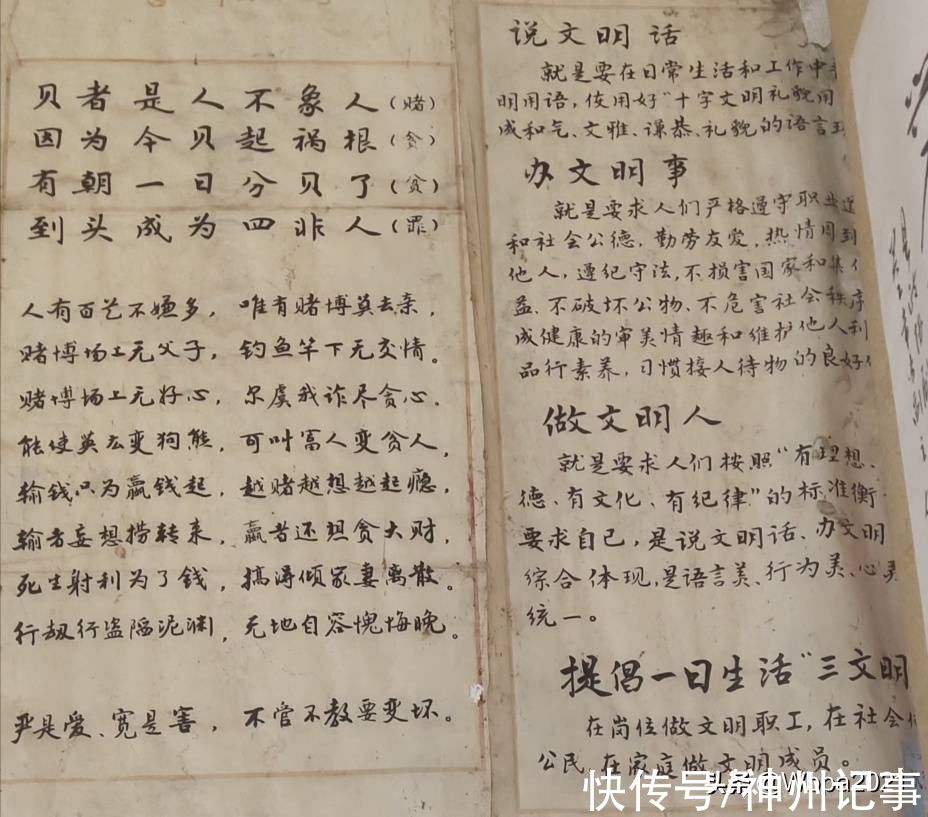 贝者是人不象人（赌）
因为今贝起祸根（贪）
有朝一日分贝了（贫）
到头成为四非人（罪）
人有百艺不嫌多，唯有赌博莫去亲，
赌博场上无父子，钓鱼竿下无交情。
赌博场上无好心，尔虞我诈尽贪心。
能使英雄变狗熊，可叫富人变贫人，
输钱只为赢钱起，越赌越想越起瘾，
输者妄想捞转来，赢者还想贪大财，
死生射利为了钱，搞得倾家妻离散。
行劫行盗陷泥渊，无地自容愧悔晚。
严是爱、宽是害，不管不教要变坏。
说文明话
就是要在日常生活和工作中
明用语，使用好“十字文明礼貌用
成和气、文雅、谦恭、礼貌的语言
办文明事
就是要求人们严格遵守职业道
和社会公德，勤劳友爱，热情周到
他人，遵纪守法，不损害国家和集
益、不破坏公物、不危害社会秩序
成健康的审美情趣和维护他人利
品行素养，习惯接人待物的良好
做文明人
就是要求人们按照“有理想、
德、有文化、有纪律”的标准衡
要求自己，是说文明话、办文明
综合体现，是语言美、行为美、心灵
统一。
提倡一日生活“三文明
在岗位做文明职工，在社会
公民 在家庭做文明成员。
快传号/神州记事